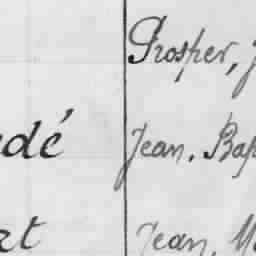 Prosper, J
dé Jean. Bap
rt Jean, M